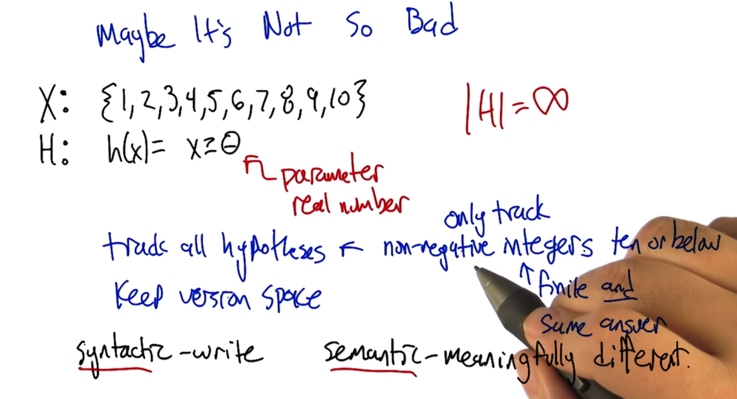 Maybe It's Not So Bad
X: {1,2,3,4,5,6,7,8,9,10}
|H|=∞
H: h(x)= x≥θ
parameter
real number
only track
track all hypotheses ← non-negative integers ten or below
Keep version space
↑ finite and
same answer
syntactic -write
semantic -meaningfully different.